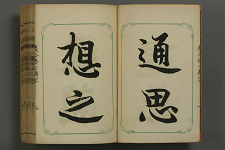 通思
想之